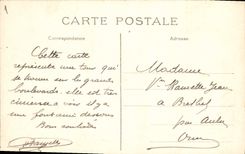 CARTE POSTALE
Correspondance
Adresse
Cette carte
représente une tour qui
se trouve sur les grands
boulevards elle est très
curieuse à voir il y a
une font une dessous
Bons souhaits
Madame
Vve Hamelle Jean
à Bréhel
par
Orne